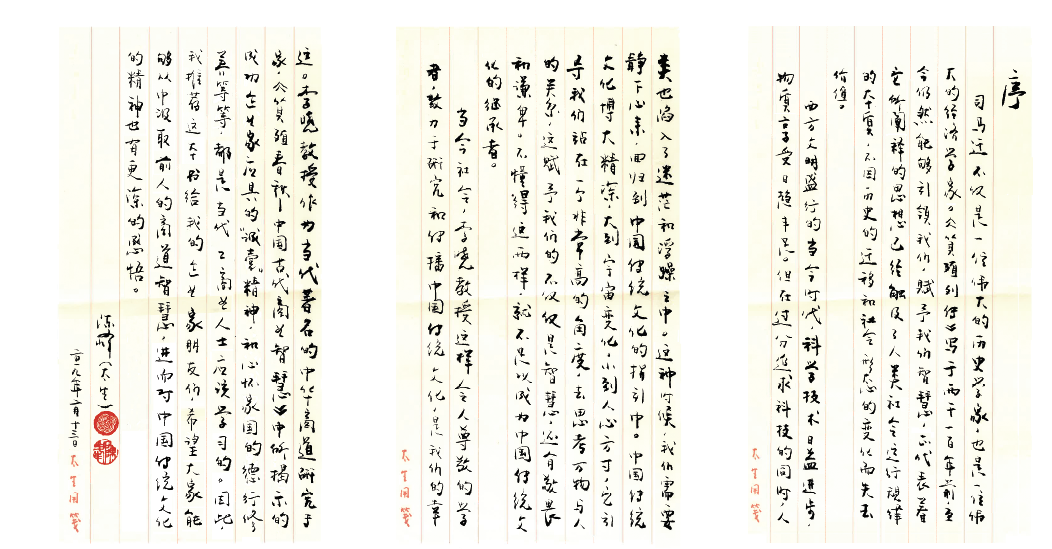 序
司马迁不仅是一位伟大的历史学家，也是一位伟
大的经济学家。《货殖列传》写于两千一百年前，至
今仍然能够引领我们，赋予我们智慧，它代表着
它所阐释的思想已经触及了人类社会运行规律
的本质，不因历史的迁移和社会形态的变化而失去
价值。
西方文明盛行的当今时代，科学技术日益进步，
物质享受日趋丰足。但在过分追求科技的同时，人
类也陷入了迷茫和浮躁之中。这种时候，我们需要
静下心来，回归到中国传统文化的指引中。中国传统
文化博大精深，大到宇宙变化，小到人心方寸，它引
导我们站在一个非常高的角度，去思考万物与人
的关系，这赋予我们的不仅仅是智慧，还有敬畏
和谦卑。不懂得这两样，就不足以成为中国传统文
化的继承者。
当今社会，李晓教授这样令人尊敬的学
者，致力于研究和传播中国传统文化，是我们的幸
运。李晓教授作为当代著名的中华商道研究专
家，《货殖春秋：中国古代商业智慧》中所揭示的
成功企业家应具的“诚壹”精神，和心怀家国的德行修
养等等，都是当代工商业人士应该学习的。因此，
我推荐这本书给我的企业家朋友们，希望大家能
够从中汲取前人的商道智慧，进而对中国传统文化
的精神也有更深的感悟。
陈峰
二〇一九年二月十三日